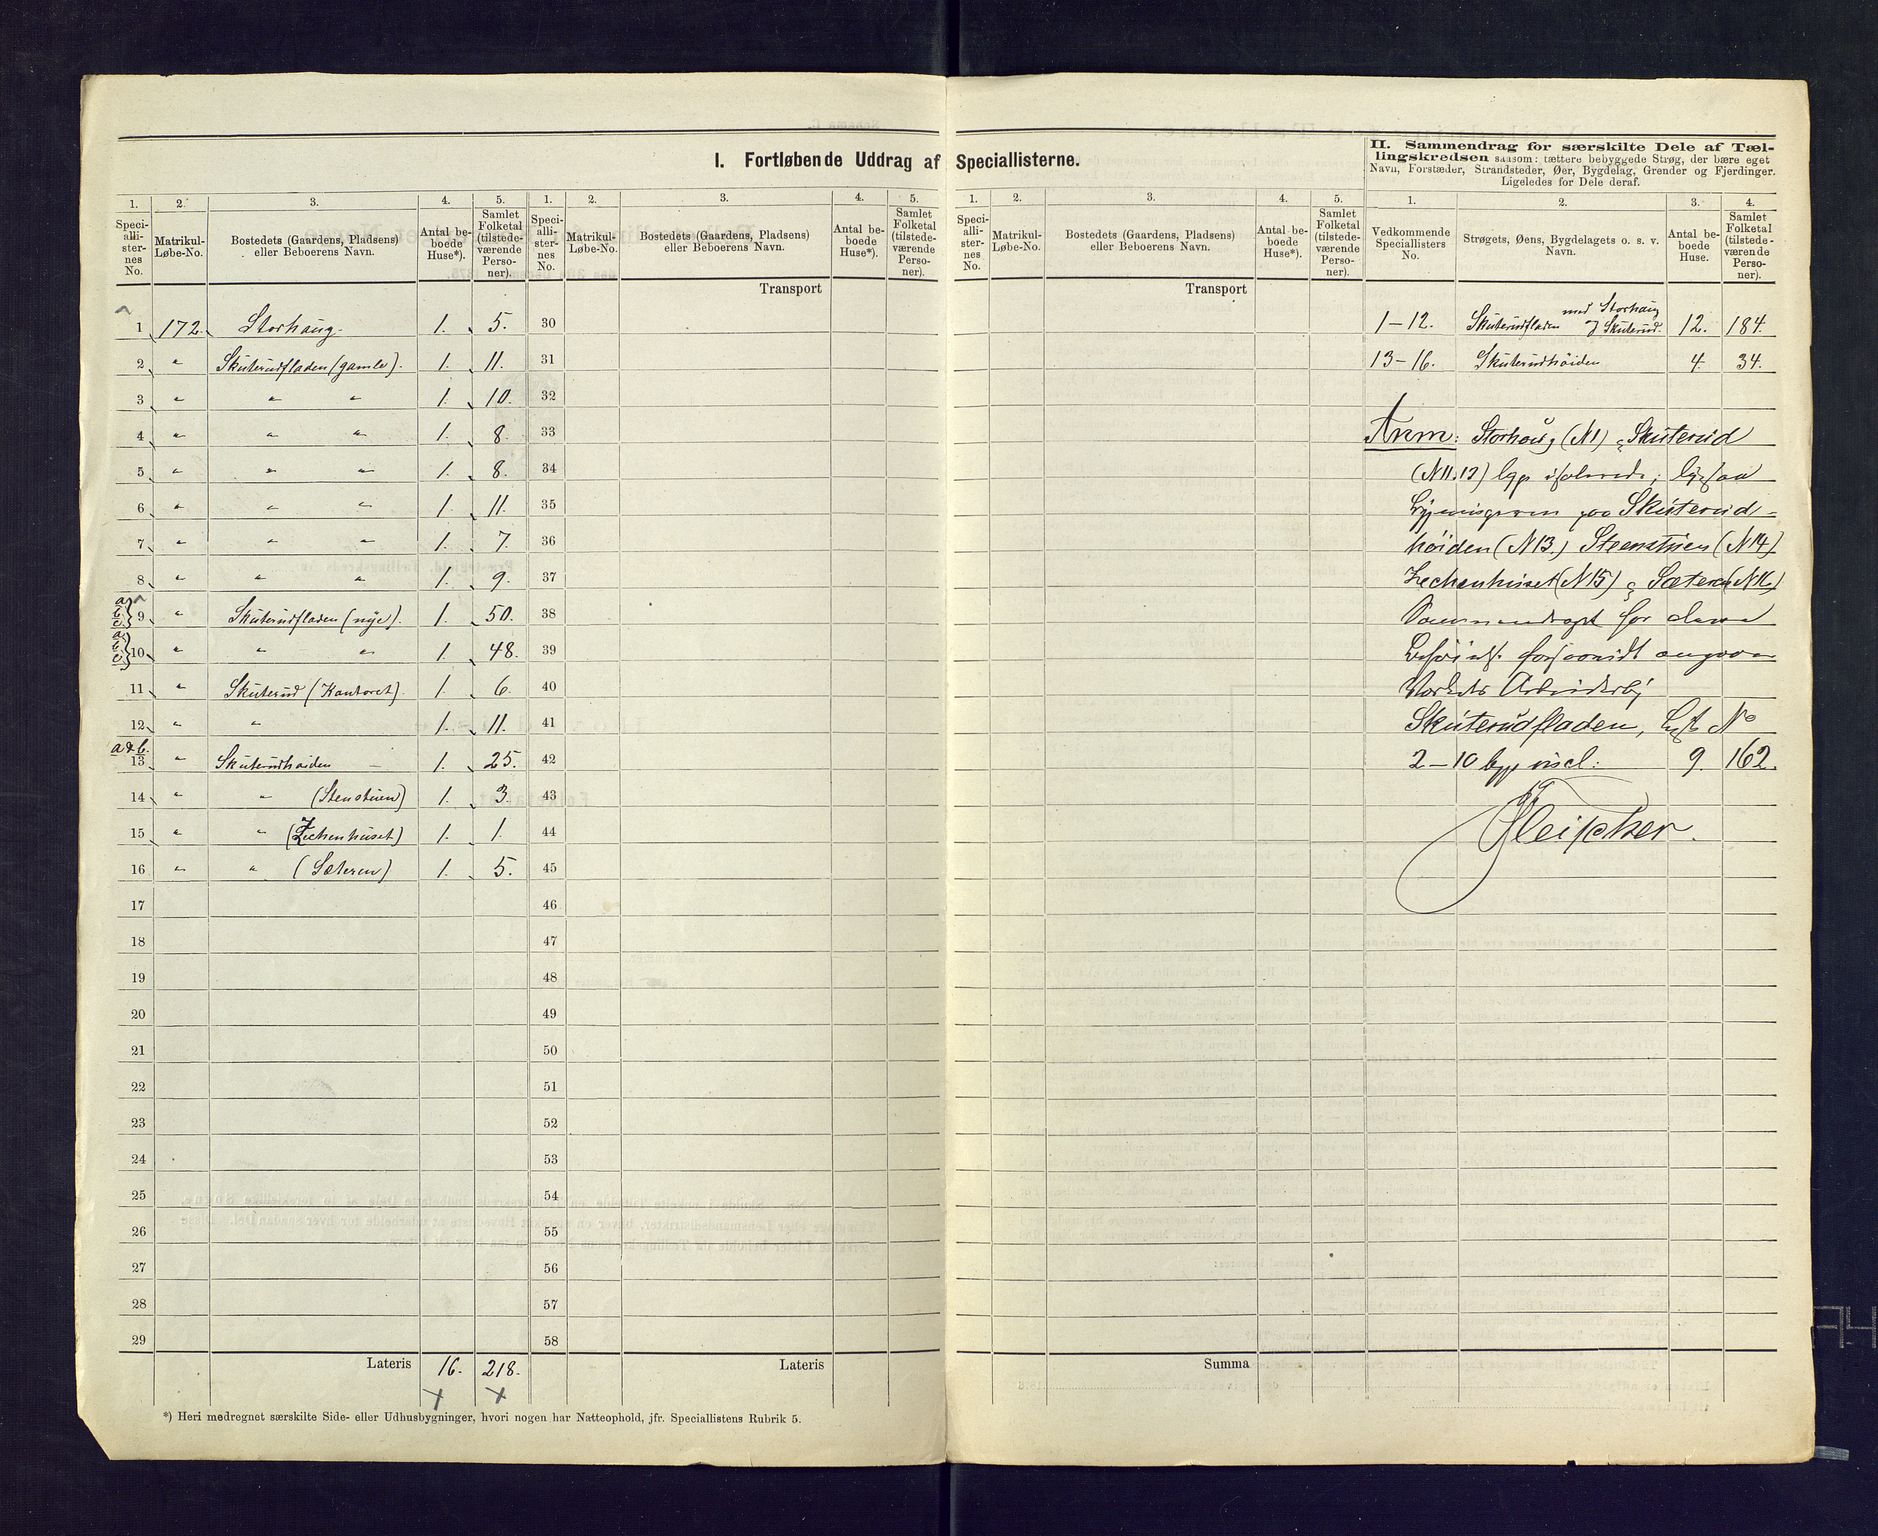 I. Fortløbende Uddrag af Speciallisterne.
1. 2. 3. 4. 5. 1. 2. 3. 4. 5.
Speciallisternes No. Matrikul-Løbe-No. Bostedets (Gaardens, Pladsens) eller Beboerens Navn. Antal beboede Huse*). Samlet Folketal (tilstedeværende Personer). Speciallisternes No. Matrikul-Løbe-No. Bostedets (Gaardens, Pladsens) eller Beboerens Navn. Antal beboede Huse*). Samlet Folketal (tilstedeværende Personer).
Transport
1 172. Storhaug. 1. 5. 30
2 " Skuterudfladen (gamle). 1. 11. 31
3 " " " 1. 10. 32
4 " " " 1. 8. 33
5 " " " 1. 8. 34
6 " " " 1. 11. 35
7 " " " 1. 7. 36
8 " " " 1. 9. 37
a. b. c. } 9 " Skuterudfladen (nye). 1. 50. 38
a. b. c. } 10 " " " 1. 48. 39
11 " Skuterud (Kontoret). 1. 6. 40
12 " " 1. 11. 41
a & b. 13 " Skuterudhøiden – 1. 25. 42
14 " " (Stenstuen) 1. 3. 43
15 " " (Zechenhuset) 1. 1. 44
16 " " (Sæteren) 1. 5. 45
17 46
18 47
19 48
20 49
21 50
22 51
23 52
24 53
25 54
26 55
27 56
28 57
29 58
Lateris 16. 218. Lateris
*) Heri medregnet særskilte Side- eller Udhusbygninger, hvori nogen har Natteophold, jfr. Speciallistens Rubrik 5.
1. 2. 3. 4. 5.
Speciallisternes No. Matrikul-Løbe-No. Bostedets (Gaardens, Pladsens) eller Beboerens Navn. Antal beboede Huse*). Samlet Folketal (tilstedeværende Personer).
Transport
Summa
II. Sammendrag for særskilte Dele af Tæl-
lingskredsen saasom: tættere bebyggede Strøg, der bære eget
Navn, Forstæder, Strandsteder, Øer, Bygdelag, Grender og Fjerdinger.
Ligeledes for Dele deraf.
1. 2. 3. 4.
Vedkommende Speciallisters No. Strøgets, Øens, Bygdelagets o. s. v. Navn. Antal beboede Huse. Samlet Folketal (tilstedeværende Personer).
1–12. Skuterudfladen med Storhaug og Skuterud. 12. 184.
13–16. Skuterudhøiden 4. 34.
Anm: Storhaug (N1) Skuterud
(N11.12) ligge isolerede; ligesaa
paa Skuterud-
høiden (N13.) Steenstuen (N14)
Zechenhuset (N15) Sæteren (N16)
for
Arbeiderby
Skuterudfladen, No
2–10 9. 162.